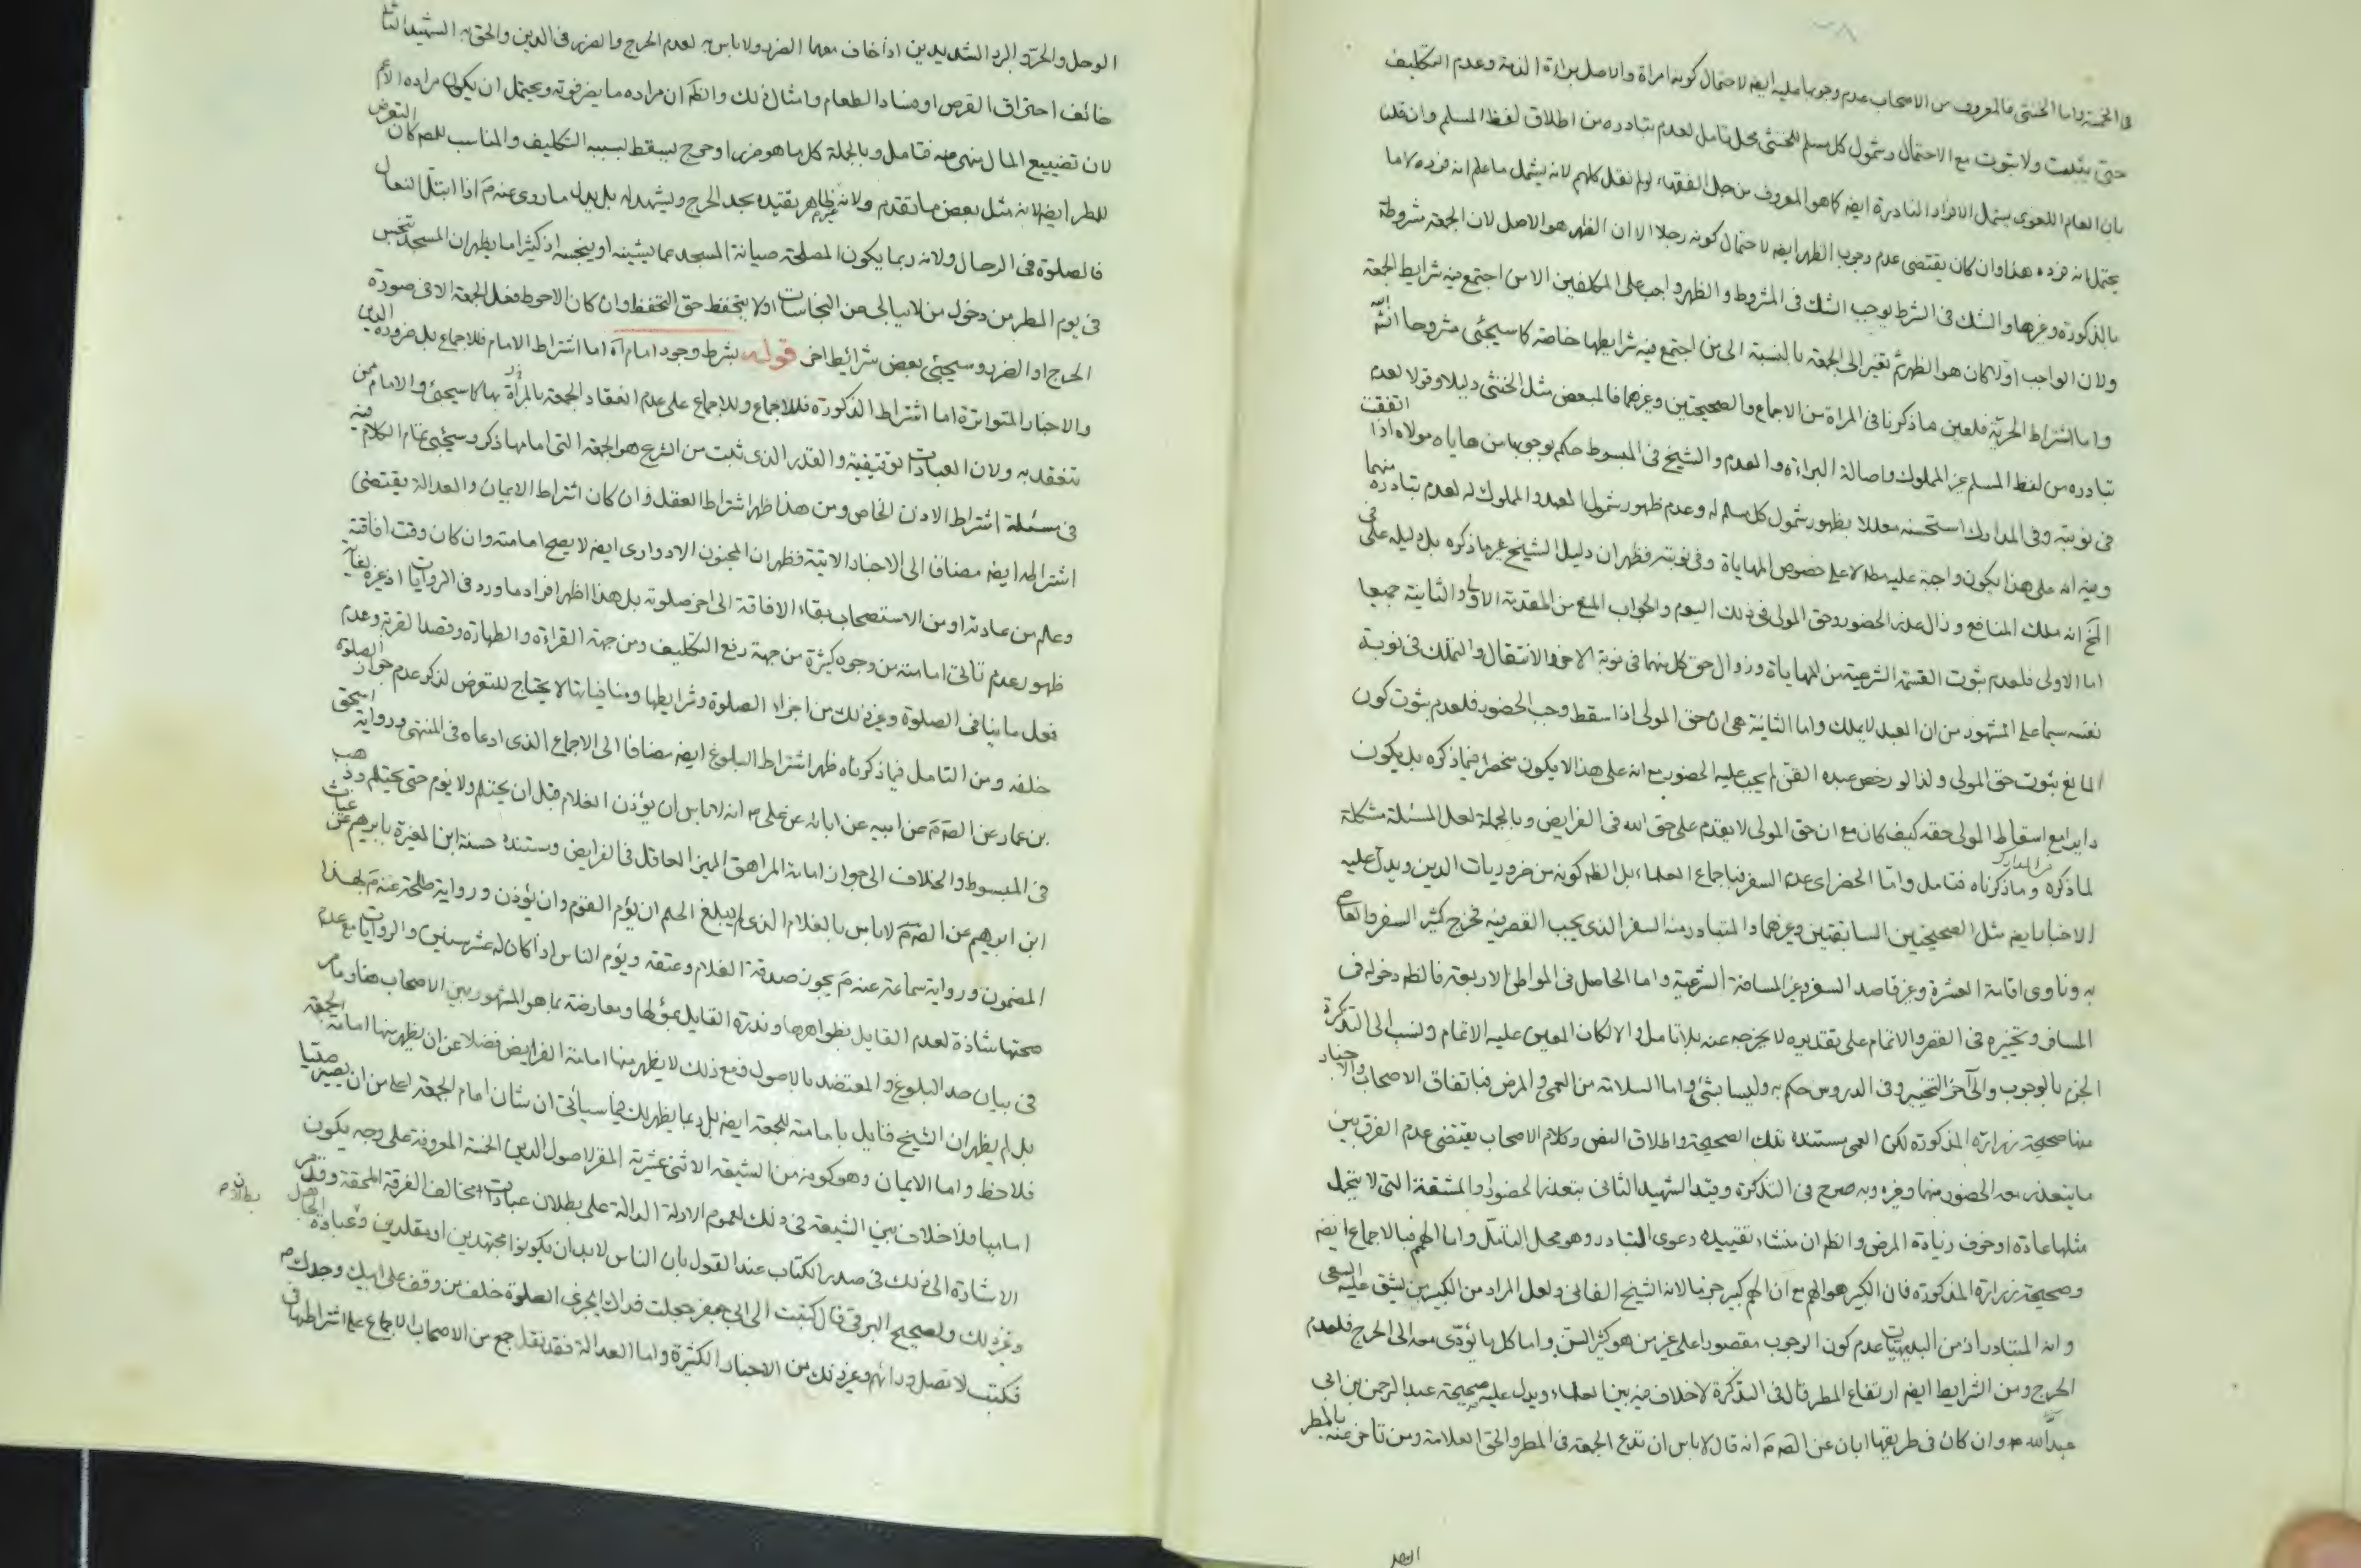 في الخمسة واما الخنثى فالمعروف من الاصحاب عدم وجوبها عليه ايضه لاحتمال كونه امراة والاصل براءة الذمة وعدم التكليف
حتى يثبت ولا ثبوت مع الاحتمال وشمول كل مسلم للخنثى محل تامل لعدم تبادره من اطلاق لفظ المسلم وان قلنا
بان العام اللغوى يشمل الافراد النادرة ايضه كما هو المعروف من جل الفقهاء لو لم نقل كلهم لانه يشمل ما علم انه فرده لا ما
يحتمل انه فرده هذا وان كان يقتضى عدم وجوب الظهر ايضه لاحتمال كونه رجلا الا ان الظهر هو الاصل لان الجمعة مشروطة
بالذكورة وغيرها والشك في الشرط يوجب الشك في المشروط والظهر واجب على المكلفين الا من اجتمع فيه شرايط الجمعة
ولان الواجب اولا كان هو الظهر ثم تغير الى الجمعة بالنسبة الى من اجتمع فيه شرايطها خاصة كما سيجئى مشروحا انشاء الله
واما اشتراط الحرية فلعين ما ذكرنا فى المراة من الاجماع والصحيحتين وغيرهما فالمبعض مثل الخنثى دليلا وقولا لعدم
تبادره من لفظ المسلم غير المملوك واصالة البراءة والعدم والشيخ فى المبسوط حكم بوجوبها من هاياه مولاه اذا اتفقت
فى نوبته وفى المدارك استحسنه معللا بظهور شمول كل مسلم له وعدم ظهور شمول العبد والمملوك له لعدم تبادره منهما
وفيه انه على هذا يكون واجبة عليه مطلا على خصوص المهاياة وفى نوبته فظهر ان دليل الشيخ غير ما ذكره بل دليله على فى
الخ انه ملك المنافع وزال عذر الحضور وحق المولى فى ذلك اليوم والجواب المنع من المقدمة الاولى والثانية جميعا
اما الاولى فلعدم ثبوت القسمة الشرعية من المهاياة وزوال حق كل منهما فى نوبة الاخر والانتقال والتملك فى نوبة
نفسه سيما على المشهور من ان العبد لا يملك واما الثانية هى ان حق المولى اذا سقط وجب الحضور فلعدم ثبوت كون
المانع ثبوت حق المولى ولذا لو رخص عبده القن لم يجب عليه الحضور مع انه على هذا لا يكون منحصرا فيما ذكره بل يكون
دايرا مع اسقاط المولى حقه كيف كان مع ان حق المولى لا يقدم على حق الله فى الفرايض وبالجملة لعل المسئلة مشكلة
لما ذكره فى المدارك وما ذكرناه فتامل واما الحضر اى عدم السفر فباجماع العلماء بل الظه كونه من ضروريات الدين ويدل عليه
الاخبار ايضه مثل الصحيحتين السابقتين وغيرهما والمتبادر منه السفر الذى يجب القصر فيه فخرج كثير السفر والعاصى
به وناوى اقامة العشرة وغير قاصد السفر وغير المسافة الشرعية واما الحاصل فى المواطن الاربعة فالظه دخوله فى
المسافر وتخييره فى القصر والاتمام على تقديره لا يخرجه عنه بلا تامل والا لكان المعين عليه الاتمام ونسب الى التذكرة
الجزم بالوجوب والى اخر التخيير وفى الدروس حكم به وليسا بشئ واما السلامة من العمى والمرض فباتفاق الاصحاب والاخبار
منها صحيحة زرارة المذكورة لكن العمى مستنده تلك الصحيحة واطلاق النص وكلام الاصحاب يقتضى عدم الفرق بين
ما يتعذر معه الحضور منها وغيره وبه صرح فى التذكرة وقيد الشهيد الثانى بتعذر الحضور او المشقة التى لا يتحمل
مثلها عادة او خوف زيادة المرض والظه ان منشاء تقييده دعوى التبادر وهو محل التامل واما الهم فبالاجماع ايضه
وصحيحة زرارة المذكورة فان الكبير هو الهم مع ان الهم كبير جزما لانه الشيخ الفانى ولعل المراد من الكبير من يشق عليه السعى
وانه المتبادر اذ من البديهيات عدم كون الوجوب مقصورا على غير من هو كثير السن واما كل ما يؤدى معه الى الحرج فلعدم
الحرج ومن الشرايط ايضه ارتفاع المطر قال فى التذكرة لا خلاف فيه بين العلماء ويدل عليه صحيحة عبد الرحمن بن ابى
عبد الله وان كان فى طريقها ابان عن الصه م انه قال لا باس ان تدع الجمعة فى المطر والحق العلامة ومن تاخر عنه بالمطر
الوحل والحر والبرد الشديدين اذا خاف معهما الضرر ولا باس به لعدم الحرج والضرر فى الدين والحق به الشهيد الثانى
خائف احتراق القرص او فساد الطعام وامثال ذلك والظه ان مراده ما يضر فوته ويحتمل ان يكون مراده الاعم
لان تضييع المال منهى عنه فتامل وبالجملة كل ما هو ضررا وحرج يسقط بسببه التكليف والمناسب للمص كان التعرض
للمطر ايضه لانه مثل بعض ما تقدم ولانه غير ظاهر تقيده بحد الحرج ويشهد له بل يدل ما روى عنه م اذا ابتل النعال
فالصلوة فى الرحال ولانه ربما يكون المصلحة صيانة المسجد عما يشينه او ينجسه اذ كثيرا ما يظهر ان المسجد تنجس
فى يوم المطر من دخول من لا يبالى عن النجاسات او لا يتحفظ حق التحفظ وان كان الاحوط فعل الجمعة الا فى صورة
الحرج او الضرر وسيجئى بعض شرائط اخر قوله بشرط وجود امام اه اما اشتراط الامام فللاجماع بل ضرورة الدين
والاخبار المتواترة اما اشتراط الذكورة فللاجماع وللاجماع على عدم انعقاد الجمعة بالمراة بها كما سيجئى والامام ممن
تنعقد به ولان العبادات توقيفية والقدر الذى ثبت من الشرع هو الجمعة التى امامها ذكر وسيجئى تمام الكلام فيه
فى مسئلة اشتراط الاذن الخاص ومن هذا ظهر اشتراط العقل وان كان اشتراط الايمان والعدالة يقتضى
اشتراطه ايضه مضافا الى الاخبار الاتية فظهر ان المجنون الادوارى ايضه لا يصح امامته وان كان وقت افاقته
وعلم من عادته او من الاستصحاب بقاء الافاقة الى اخر صلوته بل هذا اظهر افراد ما ورد فى الروايات اذ غيره
ظهور عدم تاتى امامته من وجوه كثيرة من جهة رفع التكليف ومن جهة القراءة والطهارة وقصد القربة وعدم
فعل ما ينافى الصلوة وغير ذلك من اجزاء الصلوة وشرايطها ومنافياتها لا يحتاج للتعرض لذكر عدم جواز الصلوة
خلفه ومن التامل فيما ذكرناه ظهر اشتراط البلوغ ايضه مضافا الى الاجماع الذى ادعاه فى المنتهى ورواية اسحق
بن عمار عن الصه م عن ابيه عن ابائه عن على م انه لا باس ان يؤذن الغلام قبل ان يحتلم ولا يؤم حتى يحتلم وذهب
فى المبسوط والخلاف الى جواز امامة المراهق المميز العاقل فى الفرايض ومستنده حسنة ابن المغيرة بابرهيم عن غياث
ابن ابرهيم عن الصه م لا باس بالغلام الذى لم يبلغ الحلم ان يؤم القوم وان يؤذن ورواية طلحة عنه م بهذا
المضمون ورواية سماعة عنه م يجوز صدقة الغلام وعتقه ويؤم الناس اذا كان له عشر سنين والروايات مع عدم
صحتها شاذة لعدم القايل بظواهرها وندرة القايل بمؤلها ومعارضة بما هو المشهور بين الاصحاب هنا وما مر
فى بيان حد البلوغ والمعتضد بالاصول ومع ذلك لا يظهر منها امامة الفرايض فضلا عن ان يظهر منها امامة الجمعة
بل لم يظهر ان الشيخ قايل بامامته للجمعة ايضه بل ربما يظهر لك فيما سيأتى ان شان امام الجمعة اعلى من ان يصير صبيا
فلاحظ واما الايمان وهو كونه من الشيعة الاثنى عشرية المقر لاصول الدين الخمسة المعروفة على وجه يكون
اماميا فلا خلاف بين الشيعة فى ذلك لعموم الادلة الدالة على بطلان عبادات مخالف الفرقة المحقة وقد مر
الاشارة الى ذلك فى صدر الكتاب عند القول بان الناس لا بد ان يكونوا مجتهدين او مقلدين وعبادة الجاهل
بطلان
وغير ذلك ولصحيح البرقى قال كتبت الى ابى جعفر جعلت فداك ايجزى الصلوة خلف من وقف على ابيك وجدك م
فكتب لا تصل ورائهم وغير ذلك من الاخبار الكثيرة واما العدالة فقد نقل جمع من الاصحاب الاجماع على اشتراطها فى